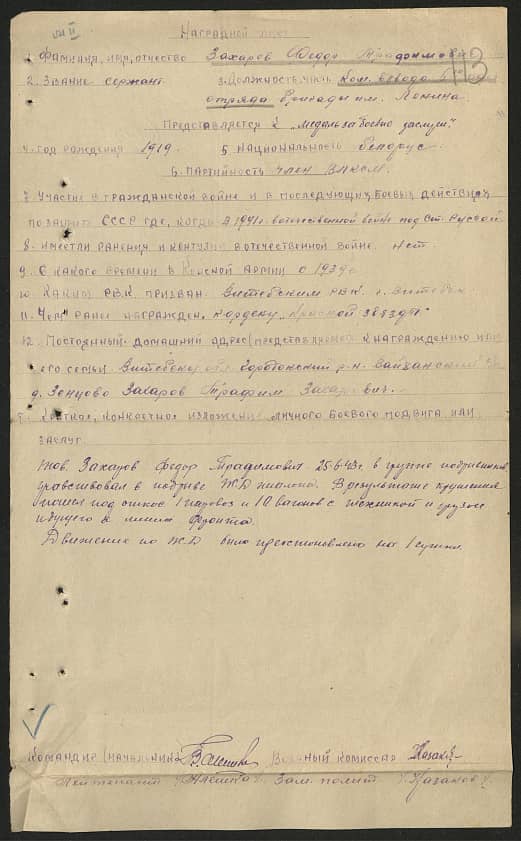 Наградной лист
113
1. Фамилия, имя, отчество Захаров Федор Трафимович
2. Звание сержант 3. Должность, часть Ком. взвода
отряда Бригады им. Ленина
Представляется к "Медаль за боевые заслуги"
4. Год рождения 1919. 5 Национальность белорус.
6. Партийность член ВЛКСМ.
7. Участие в гражданской войне и в последующих боевых действиях
по защите СССР где, когда В 1941 г. в отечественной войне под Ст. Руссой
8. Имеет ли ранения и контузии в отечественной войне. нет.
9. С какого времени в Красной армии с 1939 г.
10. Каким РВК призван Витебским РВК г. Витебск
11. Чем ранее награжден. к ордену "Красной звезды"
12. Постоянный домашний адрес (представляемого к награждению или
его семьи Витебская обл. Городокский р-н. Вайханский
д. Зенцово Захаров Трафим Захарович.
Краткое, конкретное изложение личного боевого подвига или
заслуг
Тов. Захаров Федор Трафимович 25-6-43 г. в группе подрывников
участвовал в подрыве Ж.Д. эшалона. В результате крушения
пошел под откос 1 паровоз и 10 вагонов с техникой и грузом
идущего к линии фронта.
Движение по Ж.Д было преостановлено на 1 сутки.
Командир (начальник) Военный комиссар Казаков
Лейтенант Зам. полит /Казаков/